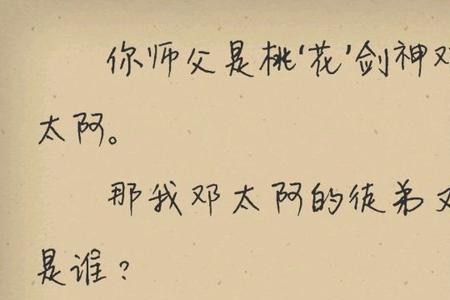 你师父是桃‘花’剑神邓
太阿。
那我邓太阿的徒弟又
是谁？